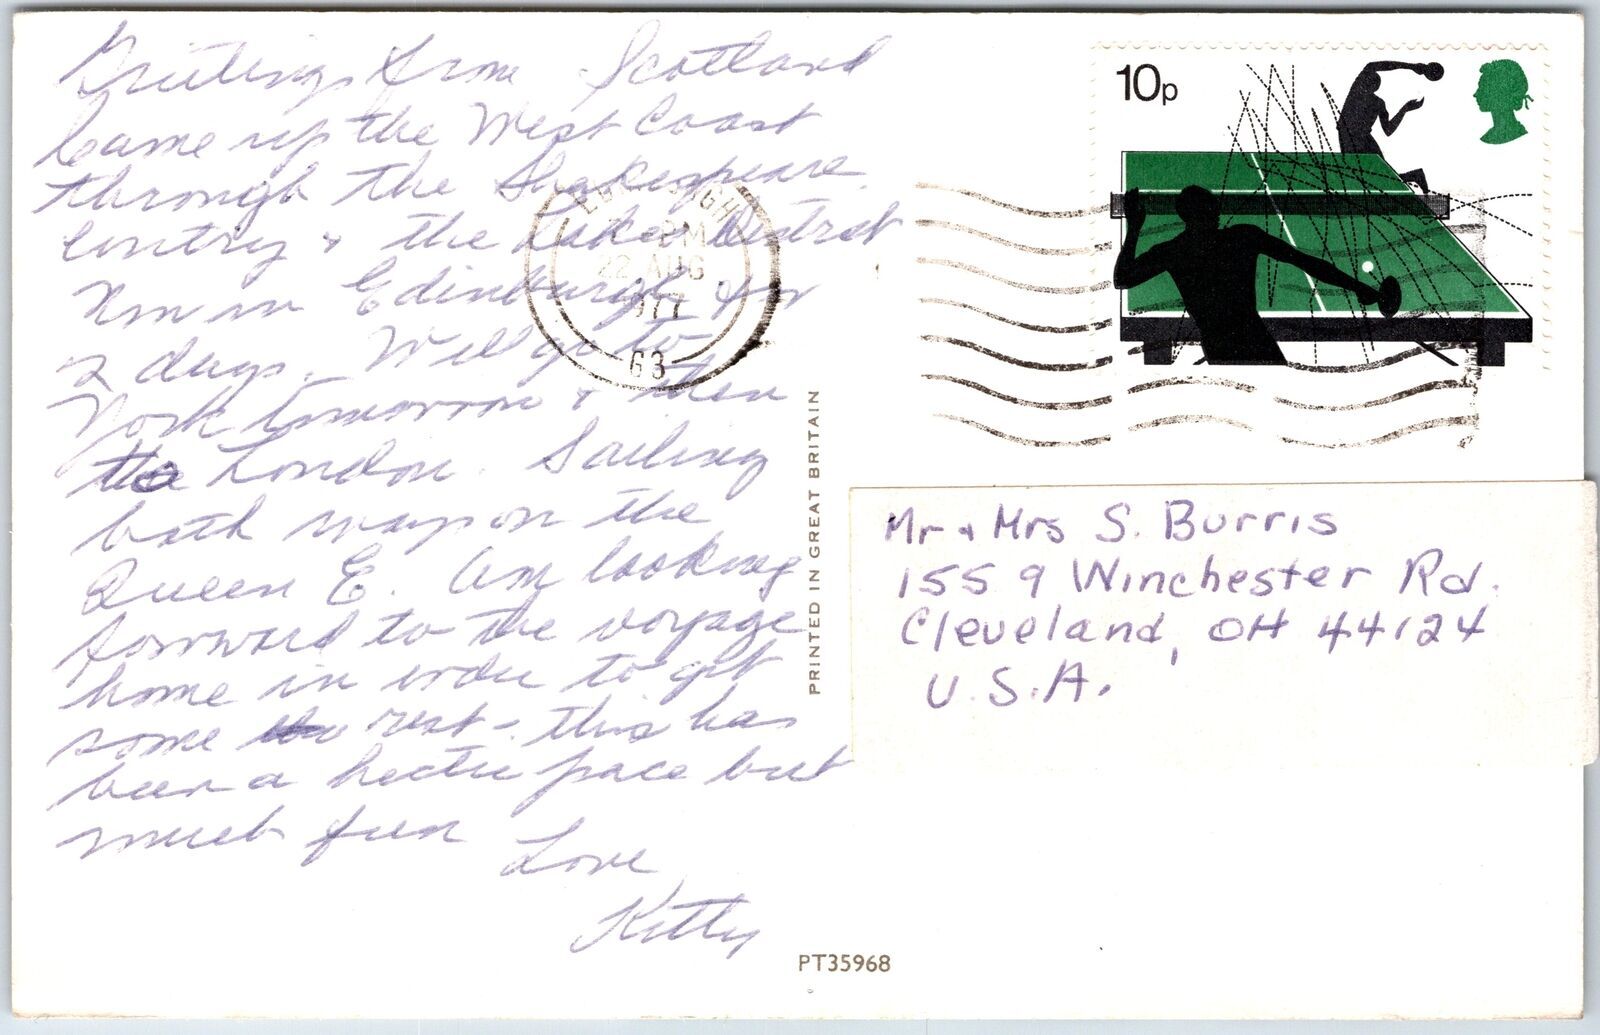 Greetings from Scotland
Came up the West Coast
through the Shakespeare
Contry & the Lakes District
Now in Edinburgh for
2 days. Will go to
York tomorrow & then
to London. Sailing
both ways on the
Queen E. Am looking
forward to the voyage
home in order to get
some rest - this has
been a hectic pace but
much fun
Love
Kitty
10p
PM
22 AUG
1977
G3
PRINTED IN GREAT BRITAIN
Mr & Mrs S. Burris
1559 Winchester Rd.
Cleveland, OH 44124
U.S.A.
PT35968